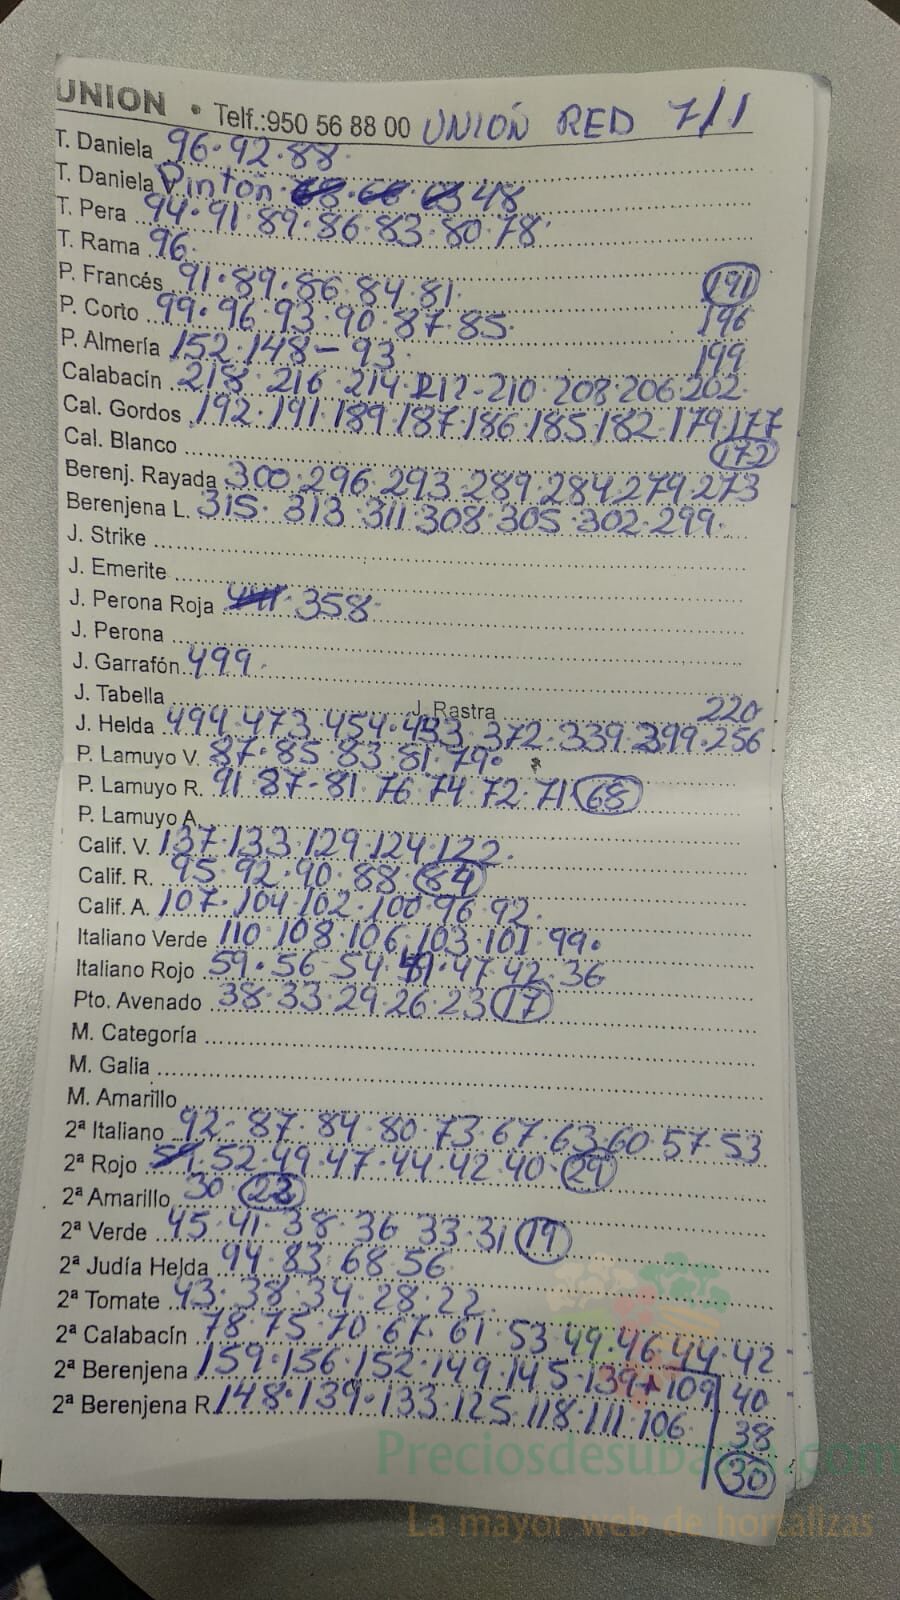 UNION • Telf.:950 56 88 00 UNIÓN RED 7/1
T. Daniela 96·92·88·
T. Daniela V. Pinton· 48
T. Pera 94·91·89·86·83·80·78·
T. Rama 96·
P. Francés 91·89·86·84·81· 191
P. Corto 99·96·93·90·87·85· 196
P. Almería 152·148-93· 199
Calabacín 218·216·214·212-210·208·206·202·
Cal. Gordos 192·191·189·187·186·185·182·179·177
Cal. Blanco 172
Berenj. Rayada 300·296·293·289·284·279·273
Berenjena L. 315·313·311·308·305·302·299·
J. Strike
J. Emerite
J. Perona Roja 441· 358·
J. Perona
J. Garrafón 499·
J. Tabella J. Rastra 220·
J. Helda 494·473·454·433·372·339·399·256
P. Lamuyo V. 87·85·83·81·79·
P. Lamuyo R. 91·87-81·76·74·72·71 68
P. Lamuyo A.
Calif. V. 137·133·129·124·122·
Calif. R. 95·92·90·88· 84
Calif. A. 107·104·102·100·96·92·
Italiano Verde 110·108·106·103·101·99·
Italiano Rojo 59·56·54· ·47·42·36
Pto. Avenado 38·33·29·26·23 17
M. Categoría
M. Galia
M. Amarillo
2ª Italiano 92·87·84·80·73·67·63·60·57·53
2ª Rojo 52·49·47·44·42·40· 29
2ª Amarillo 30·
2ª Verde 45·41·38·36·33·31 19
2ª Judía Helda 94·83·68·56·
2ª Tomate 43·38·34·28·22·
2ª Calabacín 78·75·70·67·61·53·49·46·44·42
2ª Berenjena 159·156·152·149·145·139+109 40
2ª Berenjena R. 148·139·133·125·118·111·106 38
30
Preciosdesubasta.com
La mayor web de hortalizas